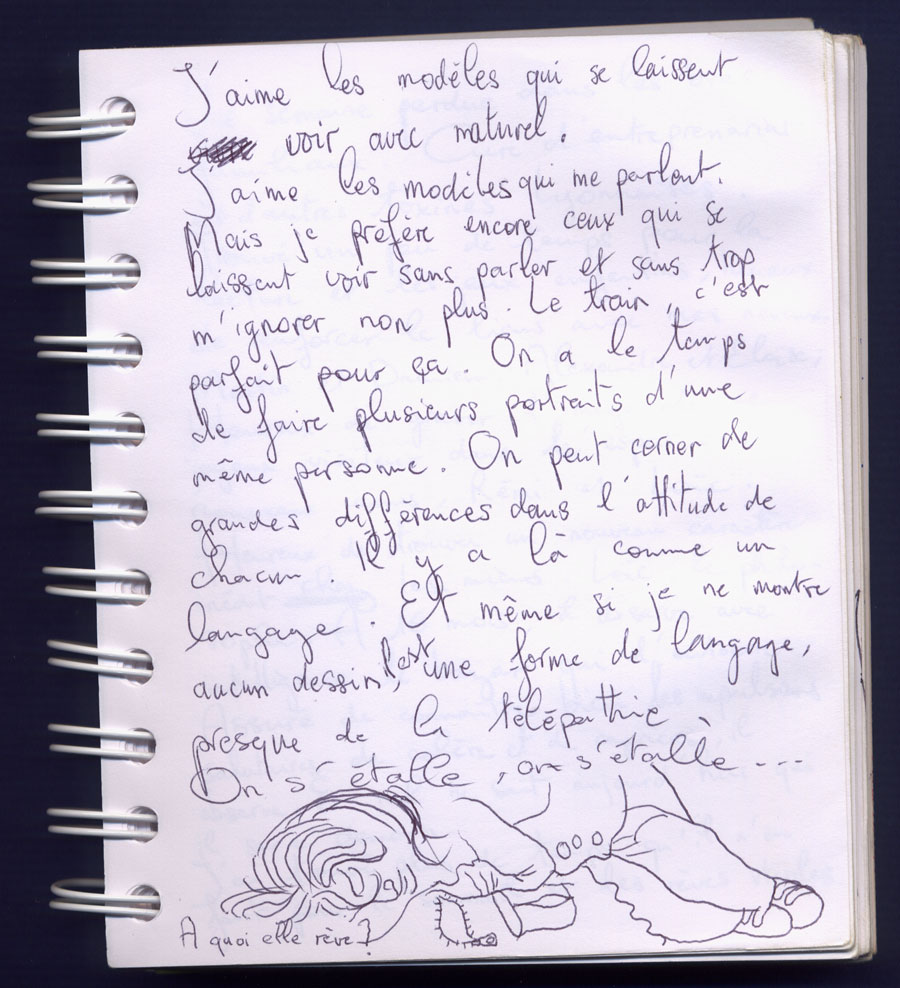 J'aime les modèles qui se laissent
voir avec naturel.
J'aime les modèles qui me parlent.
Mais je préfère encore ceux qui se
laissent voir sans parler et sans trop
m'ignorer non plus. Le train, c'est
parfait pour ça. On a le temps
de faire plusieurs portraits d'une
même personne. On peut cerner de
grandes différences dans l'attitude de
chacun. Il y a là comme un
langage. Et même si je ne montre
aucun dessin, c'est une forme de langage,
presque de la télépathie
On s'étalle, on s'étalle...
A quoi elle rêve?